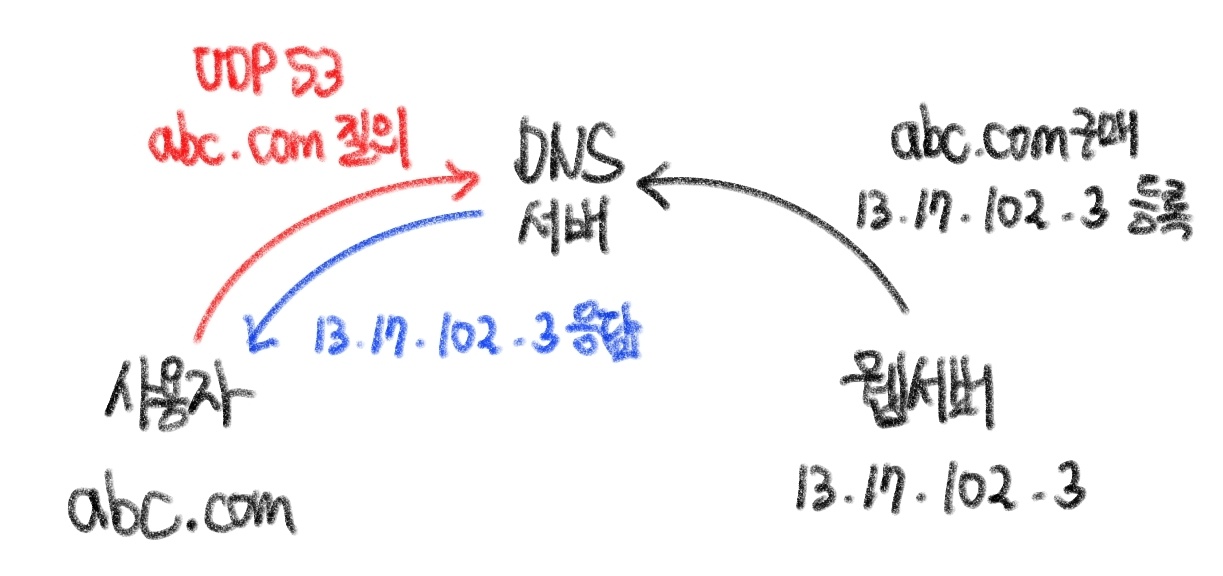 UDP 53
abc.com 질의
DNS
서버
abc.com 구매
13.17.102.3 등록
13.17.102.3 응답
사용자
abc.com
웹서버
13.17.102.3